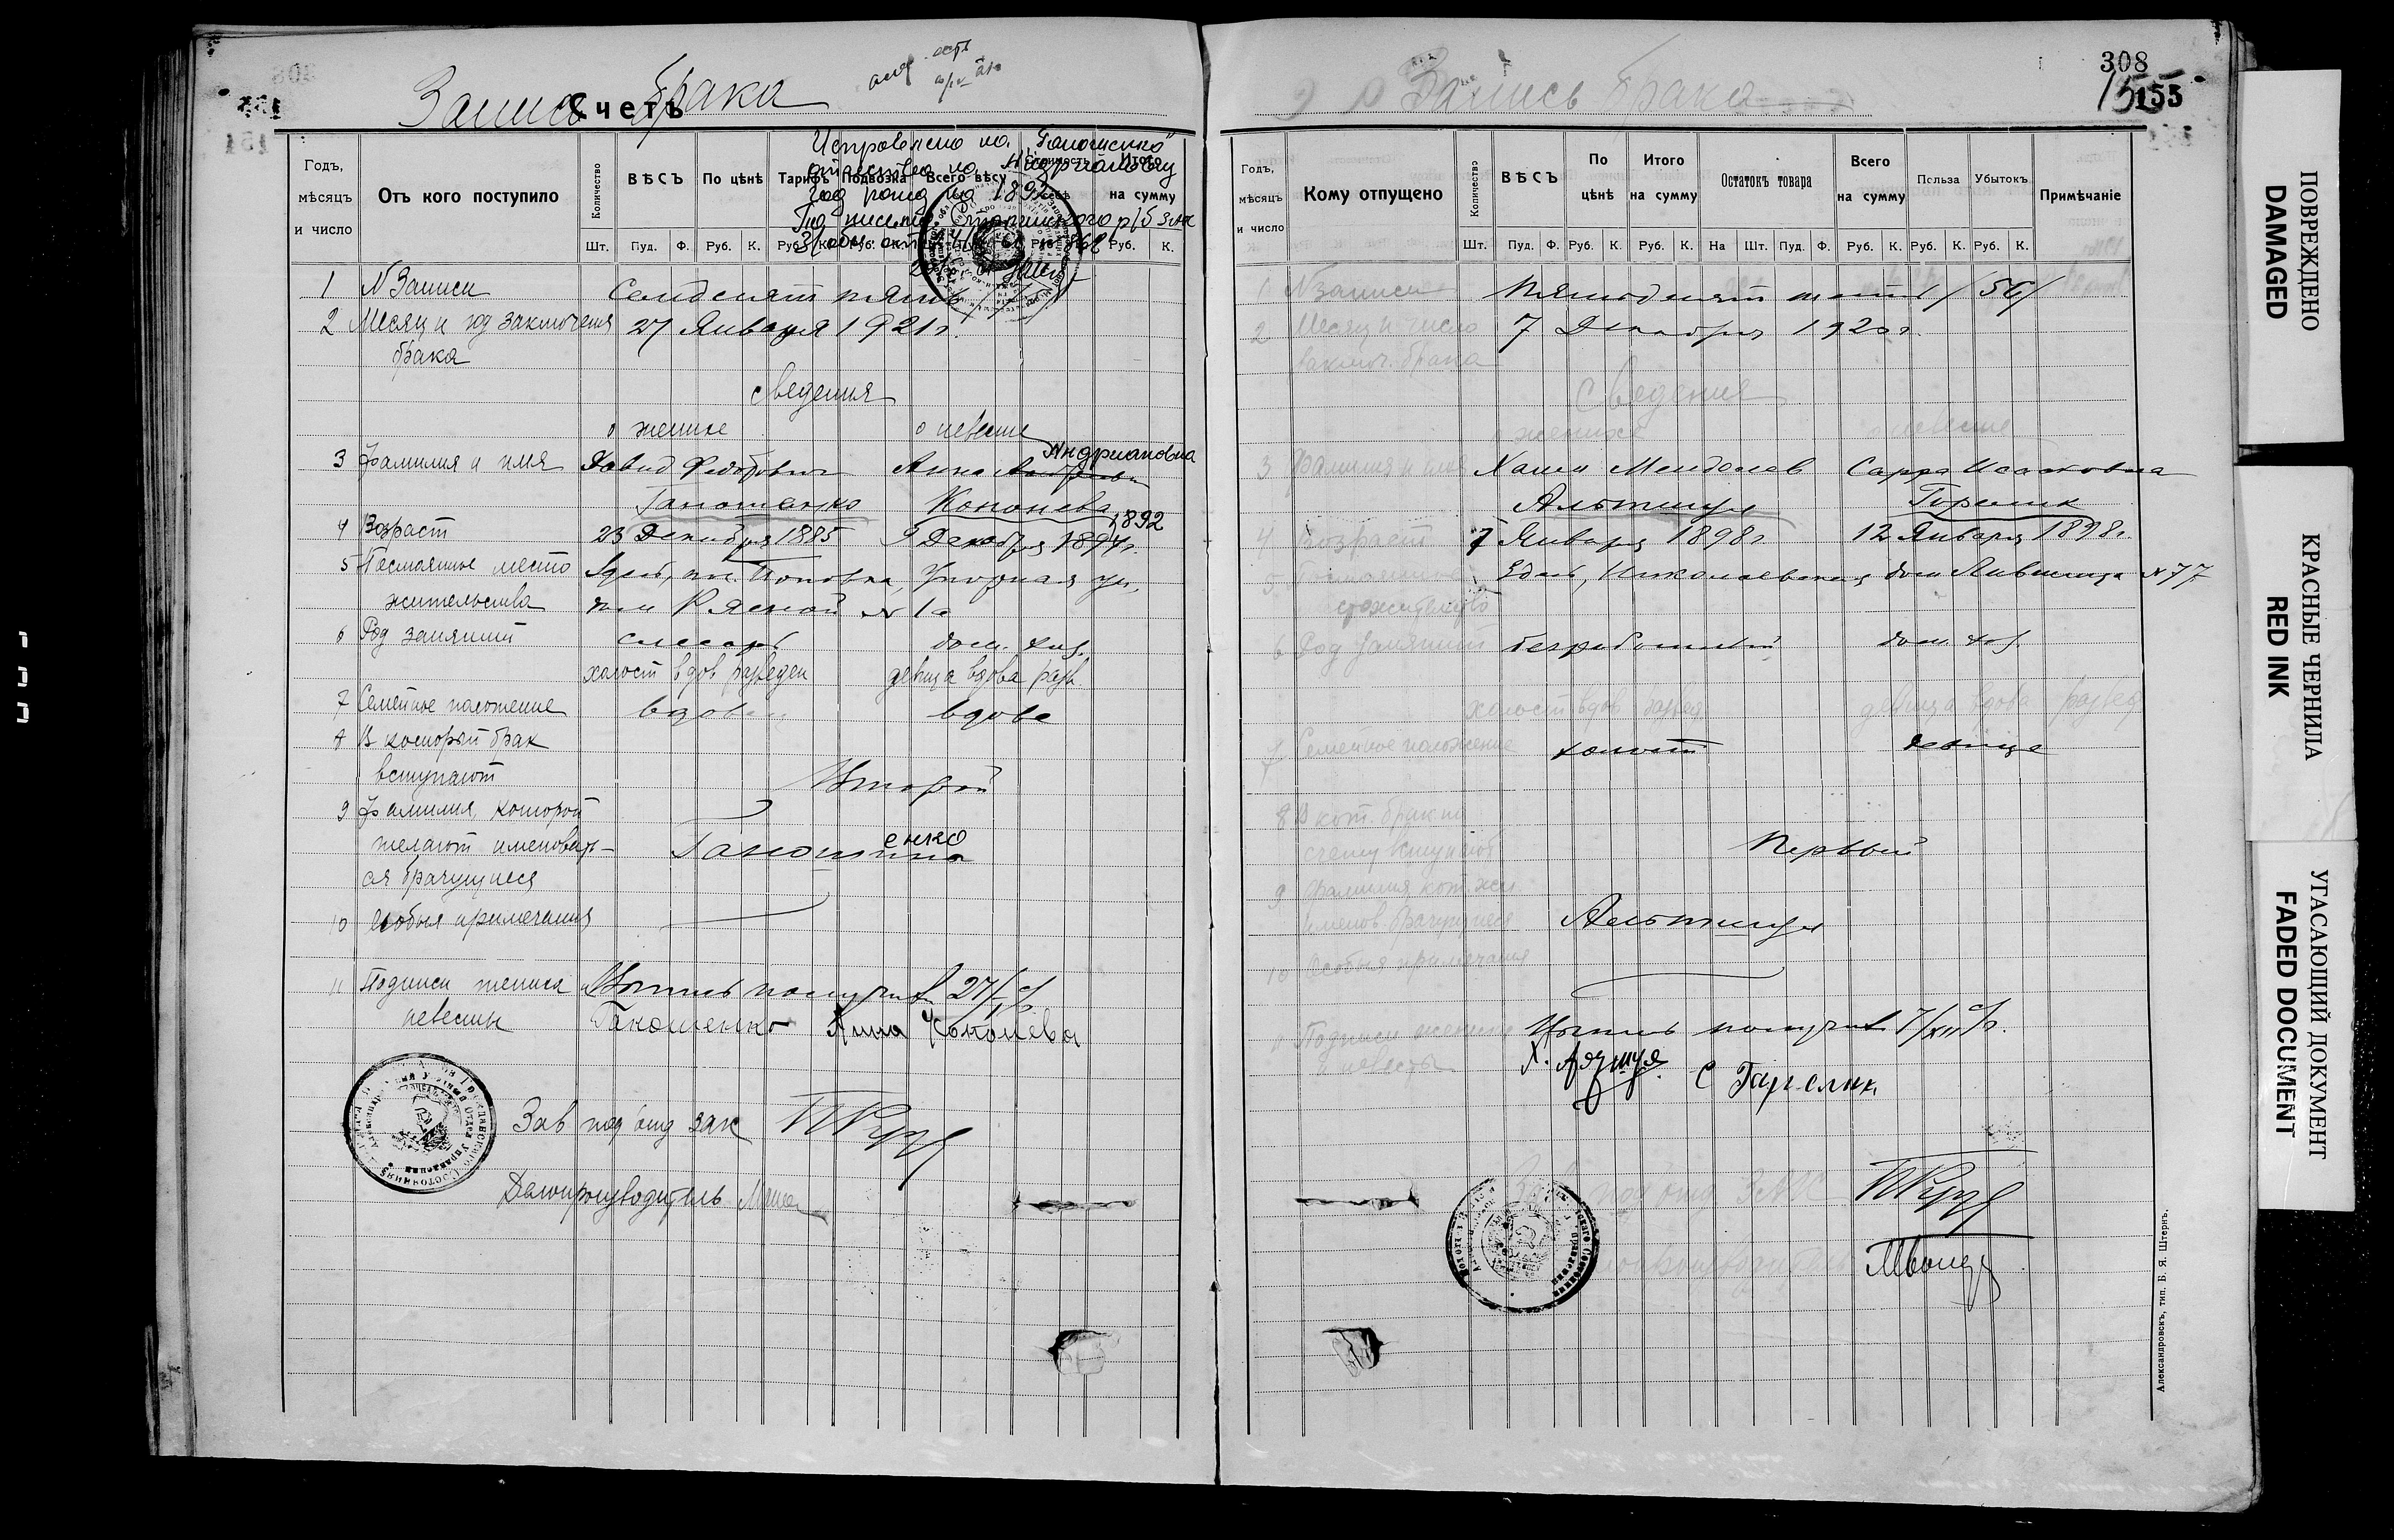 Запись брака
Счетъ
Исправлено на "Ганошенко"
отчество на Андриановну
год рожд на 1892
Годъ, мѣсяцъ и число
Отъ кого поступило
Количество
ВѢСЪ
По цѣнѣ
Тарифъ
Подвозка
Всего вѣсу
Стоимость
Итого на сумму
Шт. Пуд. Ф. Руб. К. Руб. К. Руб. К.
1 N Записи Семдесят пять
2 Месяц и год заключения 27 Января 1921 г.
брака
сведения
о женихе о невесте
Андриановна
3 Фамилия и имя Давид Федорович Анна
Ганошенко Кононева
1892
4 Возраст 23 Декабря 1885 9 Декабря 1894 г.
5 Постоянное место
жительства № 1а
6 Род занятий слесарь дом. хоз.
холост вдов разведен девица вдова разв.
7 Семейное положение вдовец вдова
8 В который брак
вступают Второй
9 Фамилия, которой
желают именовать-
ся брачущиеся
енко
10 Особыя примечания
11 Подписи жениха Выпись получил 27/I
невесты Ганошенко Анна Кононева
Зав под отд зак
Делопроизводитель
Запись брака
308
155
Годъ, мѣсяцъ и число
Кому отпущено
Количество
ВѢСЪ
По цѣнѣ
Итого на сумму
Остатокъ товара
Всего на сумму
Польза
Убытокъ
Примѣчаніе
Шт. Пуд. Ф. Руб. К. Руб. К. На Шт. Пуд. Ф. Руб. К. Руб. К. Руб. К.
1 N записи Пятьдесят шесть /56/
2 Месяц и число 7 Декабря 1920 г.
заключ. брака
Сведения
о женихе о невесте
3 Фамилия и имя Хаим Менделев Сарра Исааковна
Альтшул Горелик
4 Возраст 7 Января 1898 г. 12 Января 1898 г.
5 Здесь, Николаевская дом № 77
6 Род занятий безработный дом. хоз.
холост вдов развед девица вдова развед
7 Семейное положение холост девица
8 В кот. брак по
счету вступают Первый
9 Фамилия кот. жел
именов. брачущиеся Альтшул
10 Особыя примечания
11 Подписи жениха Выпись получил 7/XII
и невесты С Горелик
Зав под отд ЗАК
Делопроизводитель
Александровскъ, тип. Б. Я. Штернъ.
ПОВРЕЖДЕНО
DAMAGED
КРАСНЫЕ ЧЕРНИЛА
RED INK
УГАСАЮЩИЙ ДОКУМЕНТ
FADED DOCUMENT